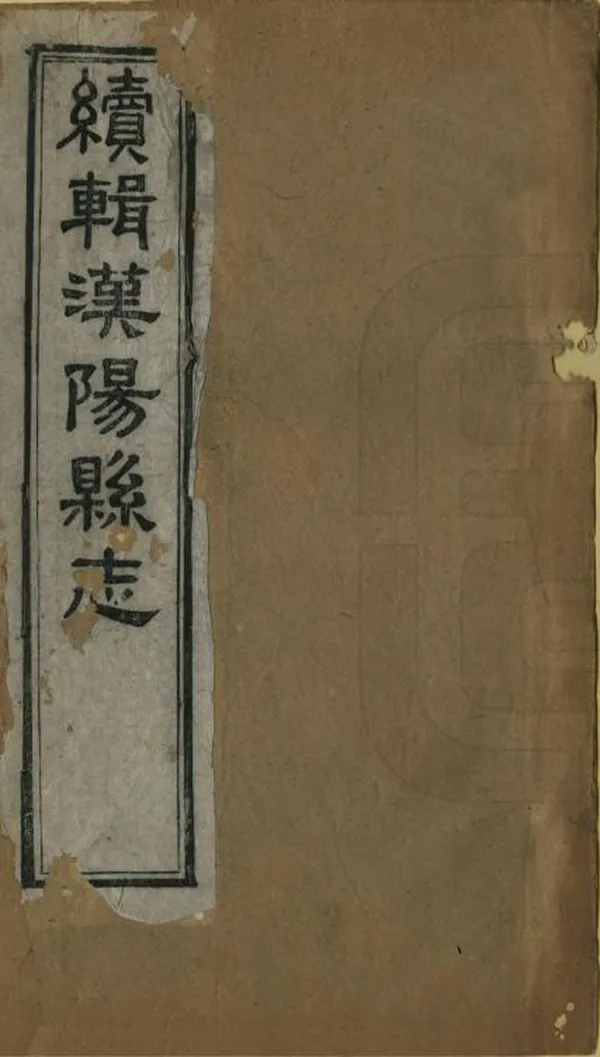 續輯漢陽縣志